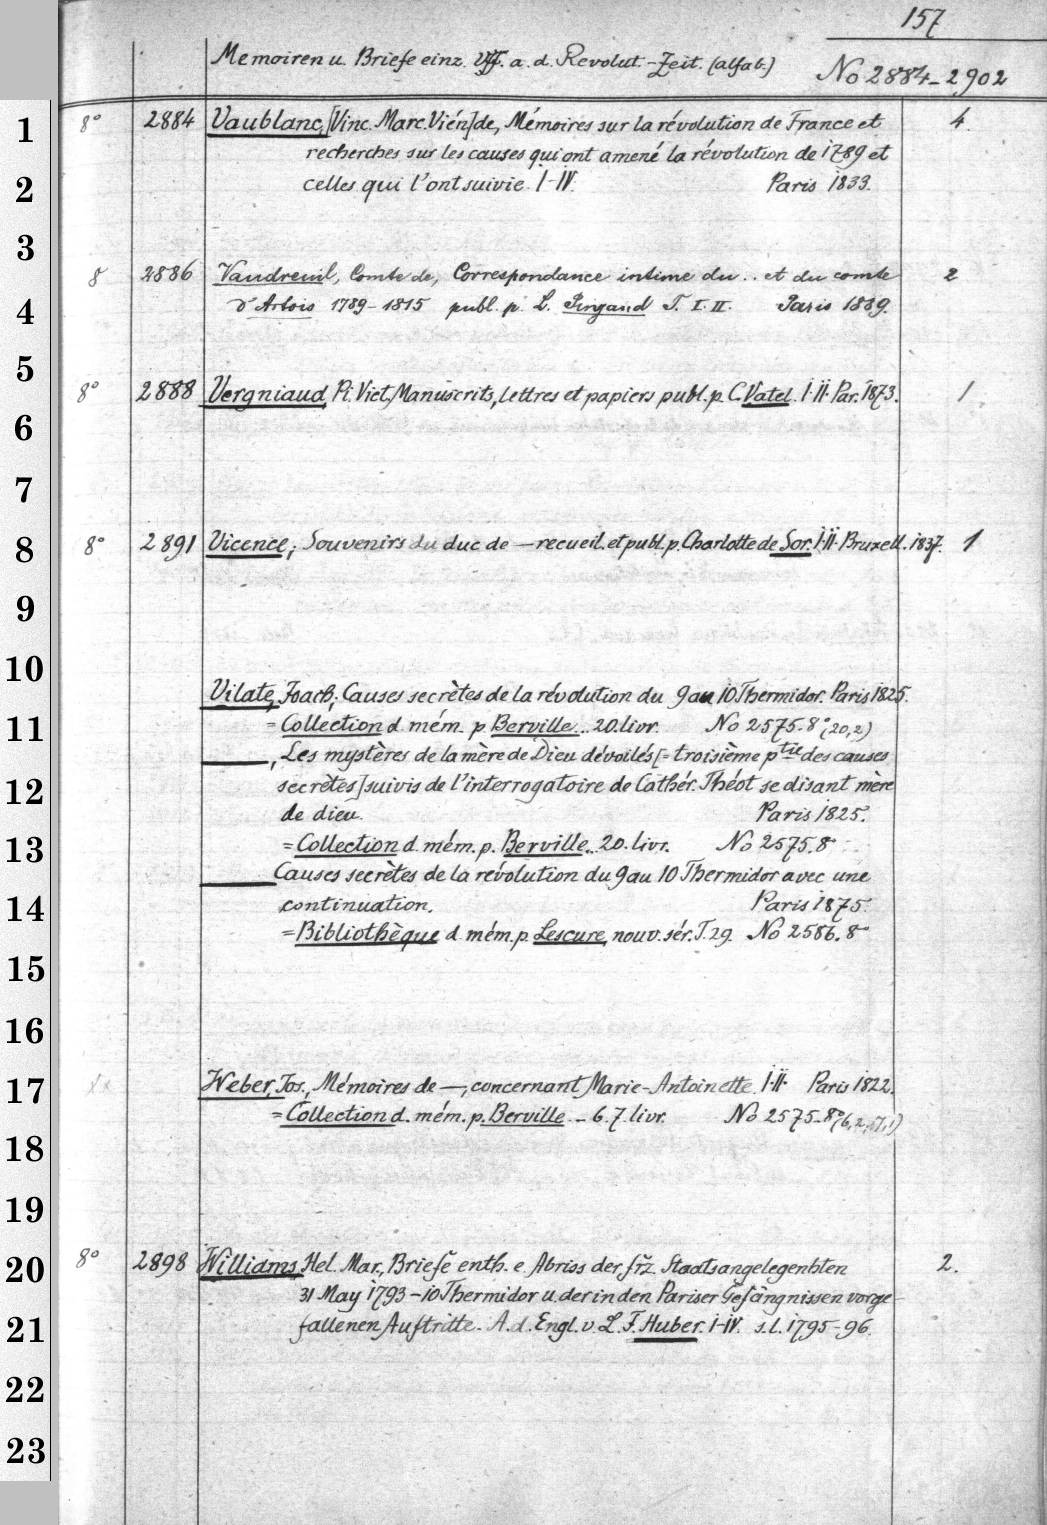 157
Memoiren u. Briefe einz. Vff. a. d. Revolut.-Zeit. (alfab.) No 2884-2902
1 8° 2884 Vaublanc, [Vinc. Marc. Vién] de, Mémoires sur la révolution de France et 4.
recherches sur les causes qui ont amené la révolution de 1789 et
2 celles qui l'ont suivie. I-IV. Paris 1833.
3
8 2886 Vaudreuil, Comte de, Correspondance intime du .. et du comte 2
4 d'Artois 1789-1815 publ. p. L. Pingaud T. I. II. Paris 1889.
5
8° 2888 Vergniaud, Pi. Vict., Manuscrits, lettres et papiers publ. p. C. Vatel. I-II. Par. 1873. 1
6
7
8 8° 2891 Vicence, Souvenirs du duc de — recueil. et publ. p. Charlotte de Sor. I-II. Bruxell. 1837. 1
9
10
Vilate, Joach., Causes secrètes de la révolution du 9 au 10 Thermidor. Paris 1825.
11 = Collection d. mém. p. Berville.. 20. livr. No 2575.8° (20,2)
——, Les mystères de la mère de Dieu dévoilés [= troisième ptie des causes
12 secrètes] suivis de l'interrogatoire de Cathér. Théot se disant mère
de dieu. Paris 1825.
13 = Collection d. mém. p. Berville.. 20. livr. No 2575.8°
—— Causes secrètes de la révolution du 9 au 10 Thermidor avec une
14 continuation. Paris 1875.
= Bibliothèque d. mém. p. Lescure, nouv. sér. T. 29. No 2586.8°
15
16
17 xx Weber, Jos., Mémoires de —, concernant Marie-Antoinette. I-II. Paris 1822.
= Collection d. mém. p. Berville - 6. 7. livr. No 2575.8° (6,2; 7,1)
18
19
20 8° 2898 Williams, Hel. Mar., Briefe enth. e. Abriss der frz. Staatsangelegenhten 2.
31 May 1793-10 Thermidor u. der in den Pariser Gefängnissen vorge-
21 fallenen Auftritte. A. d. Engl. v. L. F. Huber. I-IV. s. l. 1795-96.
22
23